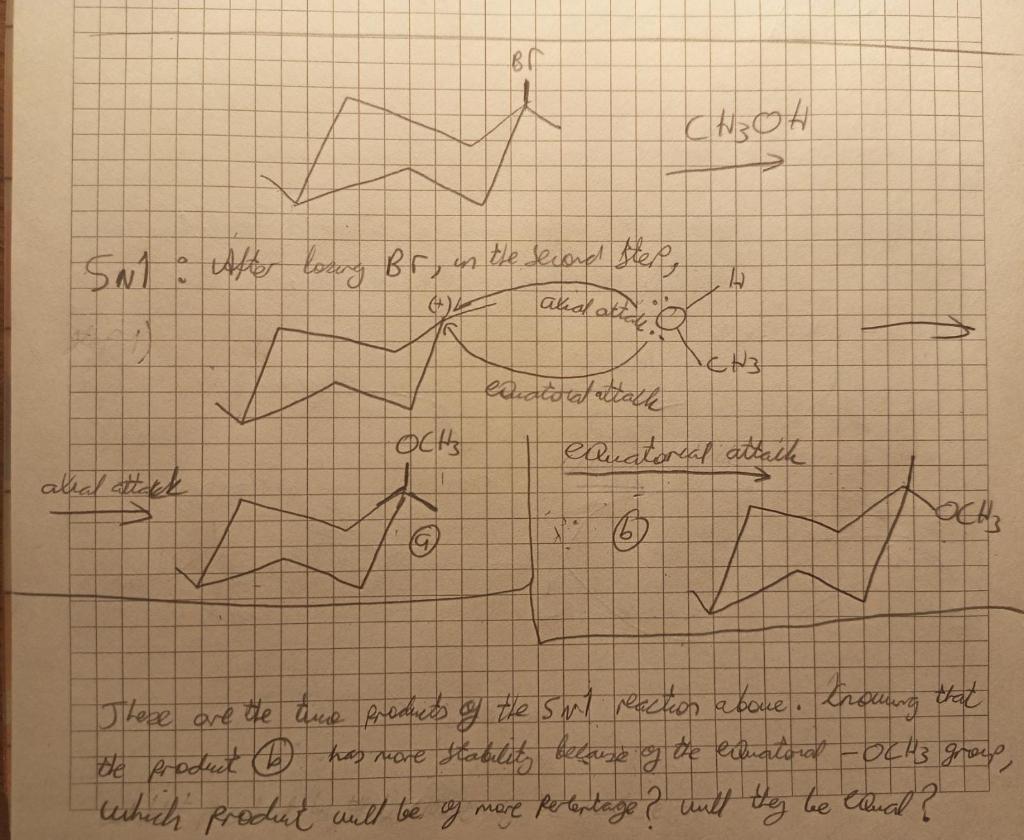 Br
CH3OH
SN1 : After losing Br, in the second step,
(+)
axial attack
H
CH3
equatorial attack
OCH3
axial attack
a
equatorial attack
b
OCH3
These are the two products of the SN1 reaction above. Knowing that
the product b has more stability because of the equatorial -OCH3 group,
which product will be of more percentage? will they be equal?